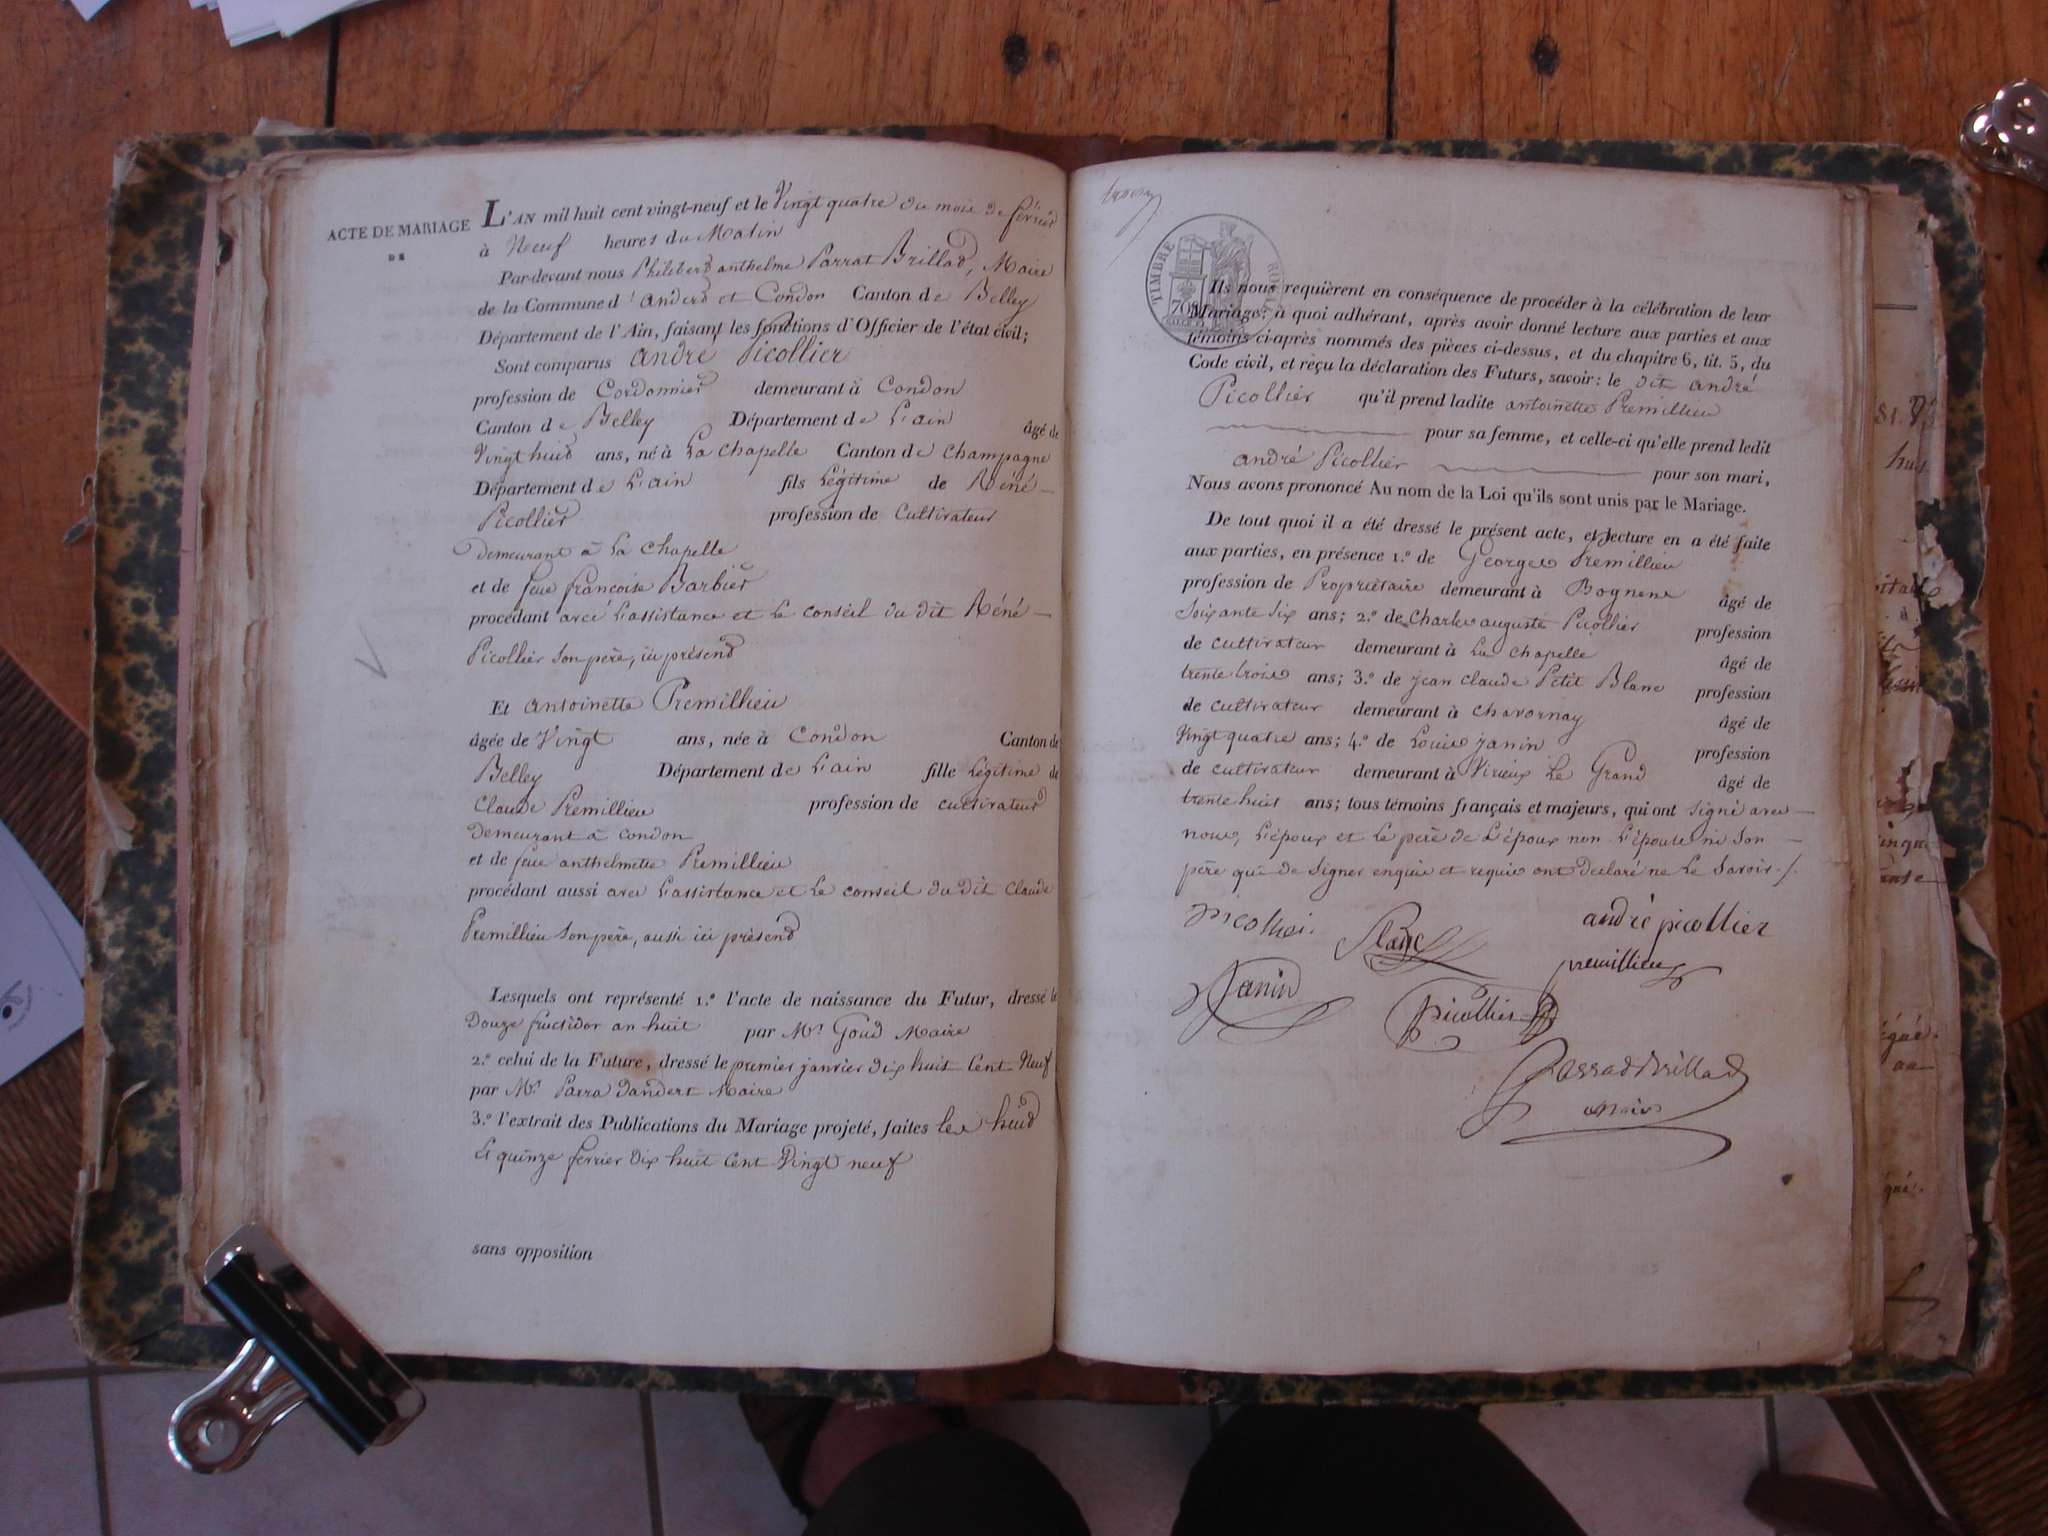 ACTE DE MARIAGE
DE
L'AN mil huit cent vingt-neuf et le Vingt quatre du mois de fevrier
à Neuf heures du Matin
Par-devant nous Philibert anthelme Parrat Brillad, Maire
de la Commune d'andert et Condon Canton de Belley
Département de l'Ain, faisant les fonctions d'Officier de l'état civil;
Sont comparus andré Picollier
profession de Cordonnier demeurant à Condon
Canton de Belley Département de L'ain âgé de
Vingt huid ans, né à La Chapelle Canton de Champagne
Département de L'ain fils Légitime de Réné
Picollier profession de Cultivateur
Demeurant à La Chapelle
et de feue francoise Barbier
procédant avec L'assistance et Le conseil du dit Réné
Picollier Son père, ici présend
Et antoinette Premillieu
âgée de Vingt ans, née à Condon Canton de
Belley Département de L'ain fille Légitime de
Claude Premillieu profession de cultivateur
Demeurant à Condon
et de feue anthelmette Premillieu
procédant aussi avec L'assistance et Le conseil du dit Claude
Premillieu Son père, aussi ici présend
Lesquels ont représenté 1.º l'acte de naissance du Futur, dressé le
Douze fructidor an huit par Mr. Goud Maire
2.º celui de la Future, dressé le premier janvier Dix huit Cent Neuf
par Mr. Parra Dandert Maire
3.º l'extrait des Publications du Mariage projeté, faites les huid
et quinze fevrier Dix huit Cent Vingt neuf
sans opposition
TIMBRE ROYAL
70
Ils nous requièrent en conséquence de procéder à la célébration de leur
Mariage; à quoi adhérant, après avoir donné lecture aux parties et aux
témoins ci-après nommés des pièces ci-dessus, et du chapitre 6, tit. 5, du
Code civil, et reçu la déclaration des Futurs, savoir: le dit andré
Picollier qu'il prend ladite antoinette Premillieu
pour sa femme, et celle-ci qu'elle prend ledit
andré Picollier pour son mari,
Nous avons prononcé Au nom de la Loi qu'ils sont unis par le Mariage.
De tout quoi il a été dressé le présent acte, et lecture en a été faite
aux parties, en présence 1.º de George Premillieu
profession de Propriétaire demeurant à Bognene âgé de
Soixante Six ans; 2.º de Charles auguste Picollier profession
de cultivateur demeurant à La Chapelle âgé de
trente trois ans; 3.º de jean Claude Petit Blanc profession
de cultivateur demeurant à Chavornay âgé de
Vingt quatre ans; 4.º de Louis Janin profession
de cultivateur demeurant à Virieux Le Grand âgé de
trente huit ans; tous témoins français et majeurs, qui ont Signé avec
nous, L'époux et Le père de L'époux non L'épouse ni Son
père qui de Signer enquis et requis ont déclaré ne Le Savoir./.
Blanc
andré picollier
Janin
premillieu
picollier
Parrad Brillad
maire